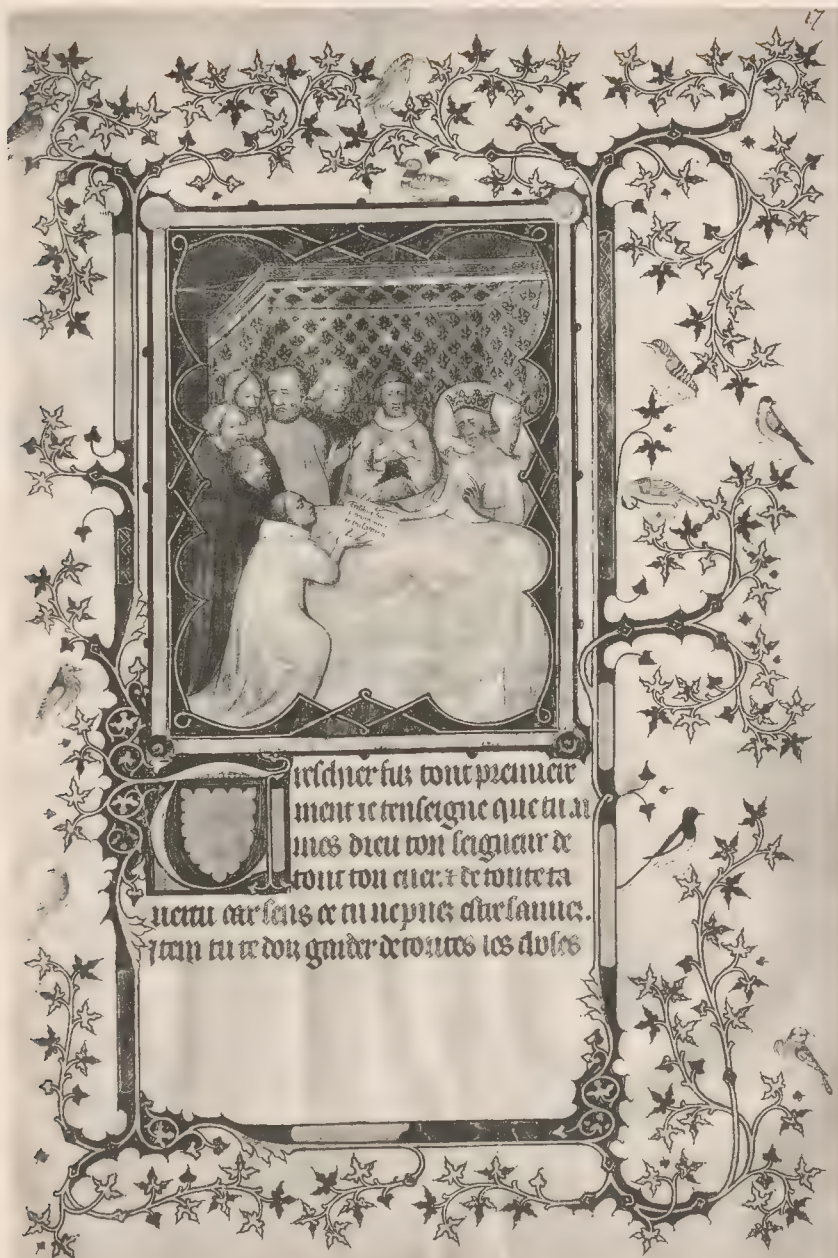 17
Treschier filz tout premiere
ment ie tenseigne que tu ai
mes dieu ton seigneur de
tout ton cuer. ⁊ de toute ta
uertu car sens ce tu ne puez estre sauuez.
Item tu te doiz garder de toutes les choses